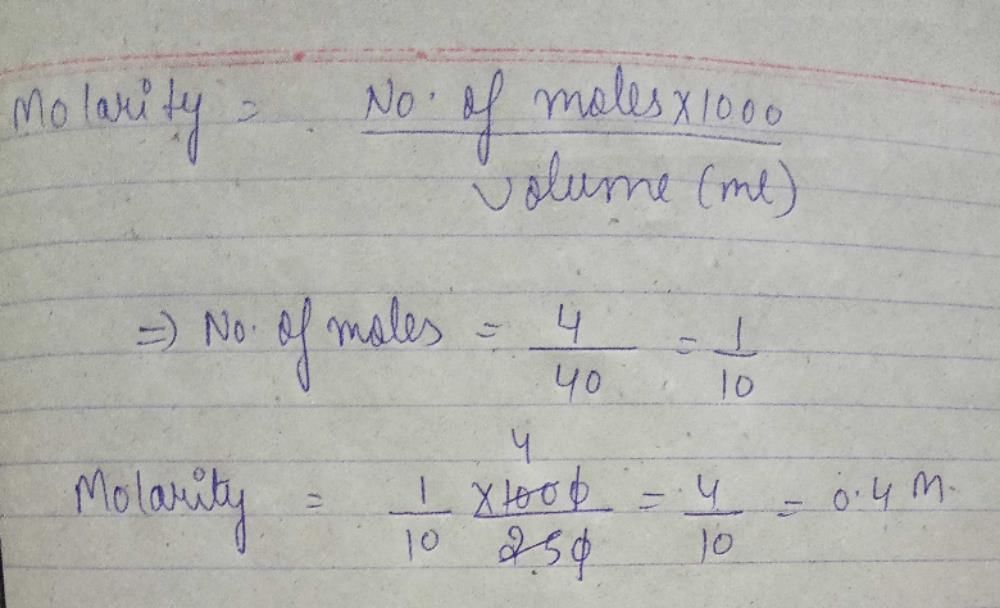 Molarity = No. of moles x 1000
volume (ml)
=) No. of moles = 4 = 1
40 10
4
Molarity = 1 x 1000 = 4 = 0.4 M.
10 250 10